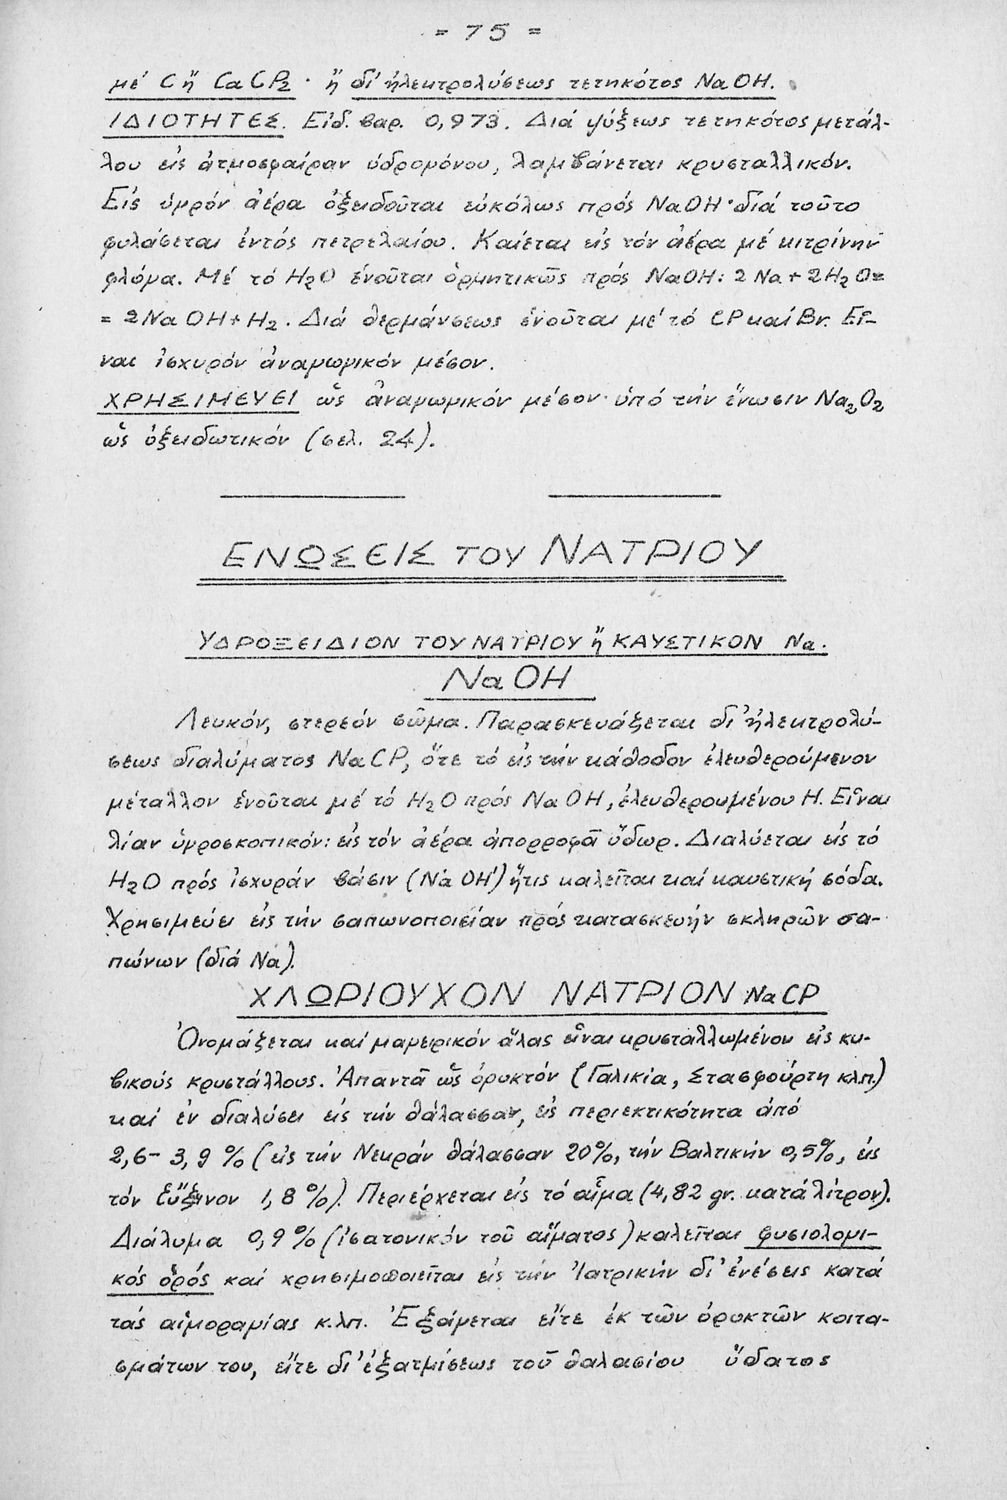 = 75 =
μέ C ἤ CaCl₂ · ἤ δι' ἠλεκτρολύσεως τετηκότος NaOH.
ΙΔΙΟΤΗΤΕΣ. Εἰδ. βαρ. 0,973. Διά ψύξεως τετηκότος μετάλ-
λου εἰς ἀτμοσφαίραν ὑδρογόνου, λαμβάνεται κρυσταλλικόν.
Εἰς ὑγρόν ἀέρα ὀξειδοῦται εὐκόλως πρός NaOH · διά τοῦτο
φυλάσεται ἐντός πετρελαίου. Καίεται εἰς τόν ἀέρα μέ κιτρίνην
φλόγα. Μέ τό H₂O ἑνοῦται ὁρμητικῶς πρός NaOH: 2Na + 2H₂O=
= 2NaOH + H₂. Διά θερμάνσεως ἑνοῦται μέ τό Cl καί Br. Εἶ-
ναι ἰσχυρόν ἀναγωγικόν μέσον.
ΧΡΗΣΙΜΕΥΕΙ ὡς ἀναγωγικόν μέσον · ὑπό τήν ἕνωσιν Na₂O₂
ὡς ὀξειδωτικόν (σελ. 24).
ΕΝΩΣΕΙΣ ΤΟΥ ΝΑΤΡΙΟΥ
ΥΔΡΟΞΕΙΔΙΟΝ ΤΟΥ ΝΑΤΡΙΟΥ ἤ ΚΑΥΣΤΙΚΟΝ Na.
NaOH
Λευκόν, στερεόν σῶμα. Παρασκευάζεται δι' ἠλεκτρολύ-
σεως διαλύματος NaCl, ὅτε τό εἰς τήν κάθοδον ἐλευθερούμενον
μέταλλον ἑνοῦται μέ τό H₂O πρός NaOH, ἐλευθερουμένου H. Εἶναι
λίαν ὑγροσκοπικόν: εἰς τόν ἀέρα ἀπορροφᾶ ὕδωρ. Διαλύεται εἰς τό
H₂O πρός ἰσχυράν βάσιν (Na˙OH') ἥτις καλεῖται καί καυστική σόδα.
Χρησιμεύει εἰς τήν σαπωνοποιείαν πρός κατασκευήν σκληρῶν σα-
πώνων (διά Na).
ΧΛΩΡΙΟΥΧΟΝ ΝΑΤΡΙΟΝ NaCl
Ὀνομάζεται καί μαγειρικόν ἅλας εἶναι κρυσταλλωμένον εἰς κυ-
βικούς κρυστάλλους. Ἀπαντᾶ ὡς ὀρυκτόν (Γαλικία, Στασφούρτη κλπ.)
καί ἐν διαλύσει εἰς τήν θάλασσαν, εἰς περιεκτικότητα ἀπό
2,6 - 3,9 % (εἰς τήν Νεκράν θάλασσαν 20%, τήν Βαλτικήν 0,5%, εἰς
τόν Εὔξινον 1,8 %). Περιέρχεται εἰς τό αἷμα (4,82 gr. κατά λίτρον).
Διάλυμα 0,9 % (ἰσατονικόν τοῦ αἵματος) καλεῖται φυσιολογι-
κός ὀρός καί χρησιμοποιεῖται εἰς τήν Ἰατρικήν δι' ἐνέσεις κατά
τάς αἱμοραγίας κ.λπ. Ἐξάγεται εἴτε ἐκ τῶν ὀρυκτῶν κοιτα-
σμάτων του, εἴτε δι' ἐξατμίσεως τοῦ θαλασίου ὕδατος